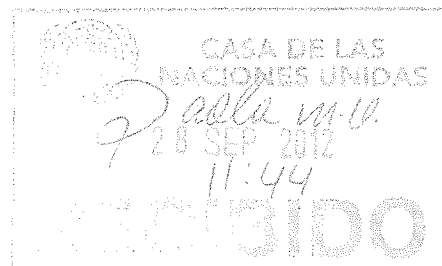 CASA DE LAS
NACIONES UNIDAS
Paola m.v.
28 SEP 2012
11:44
RECIBIDO